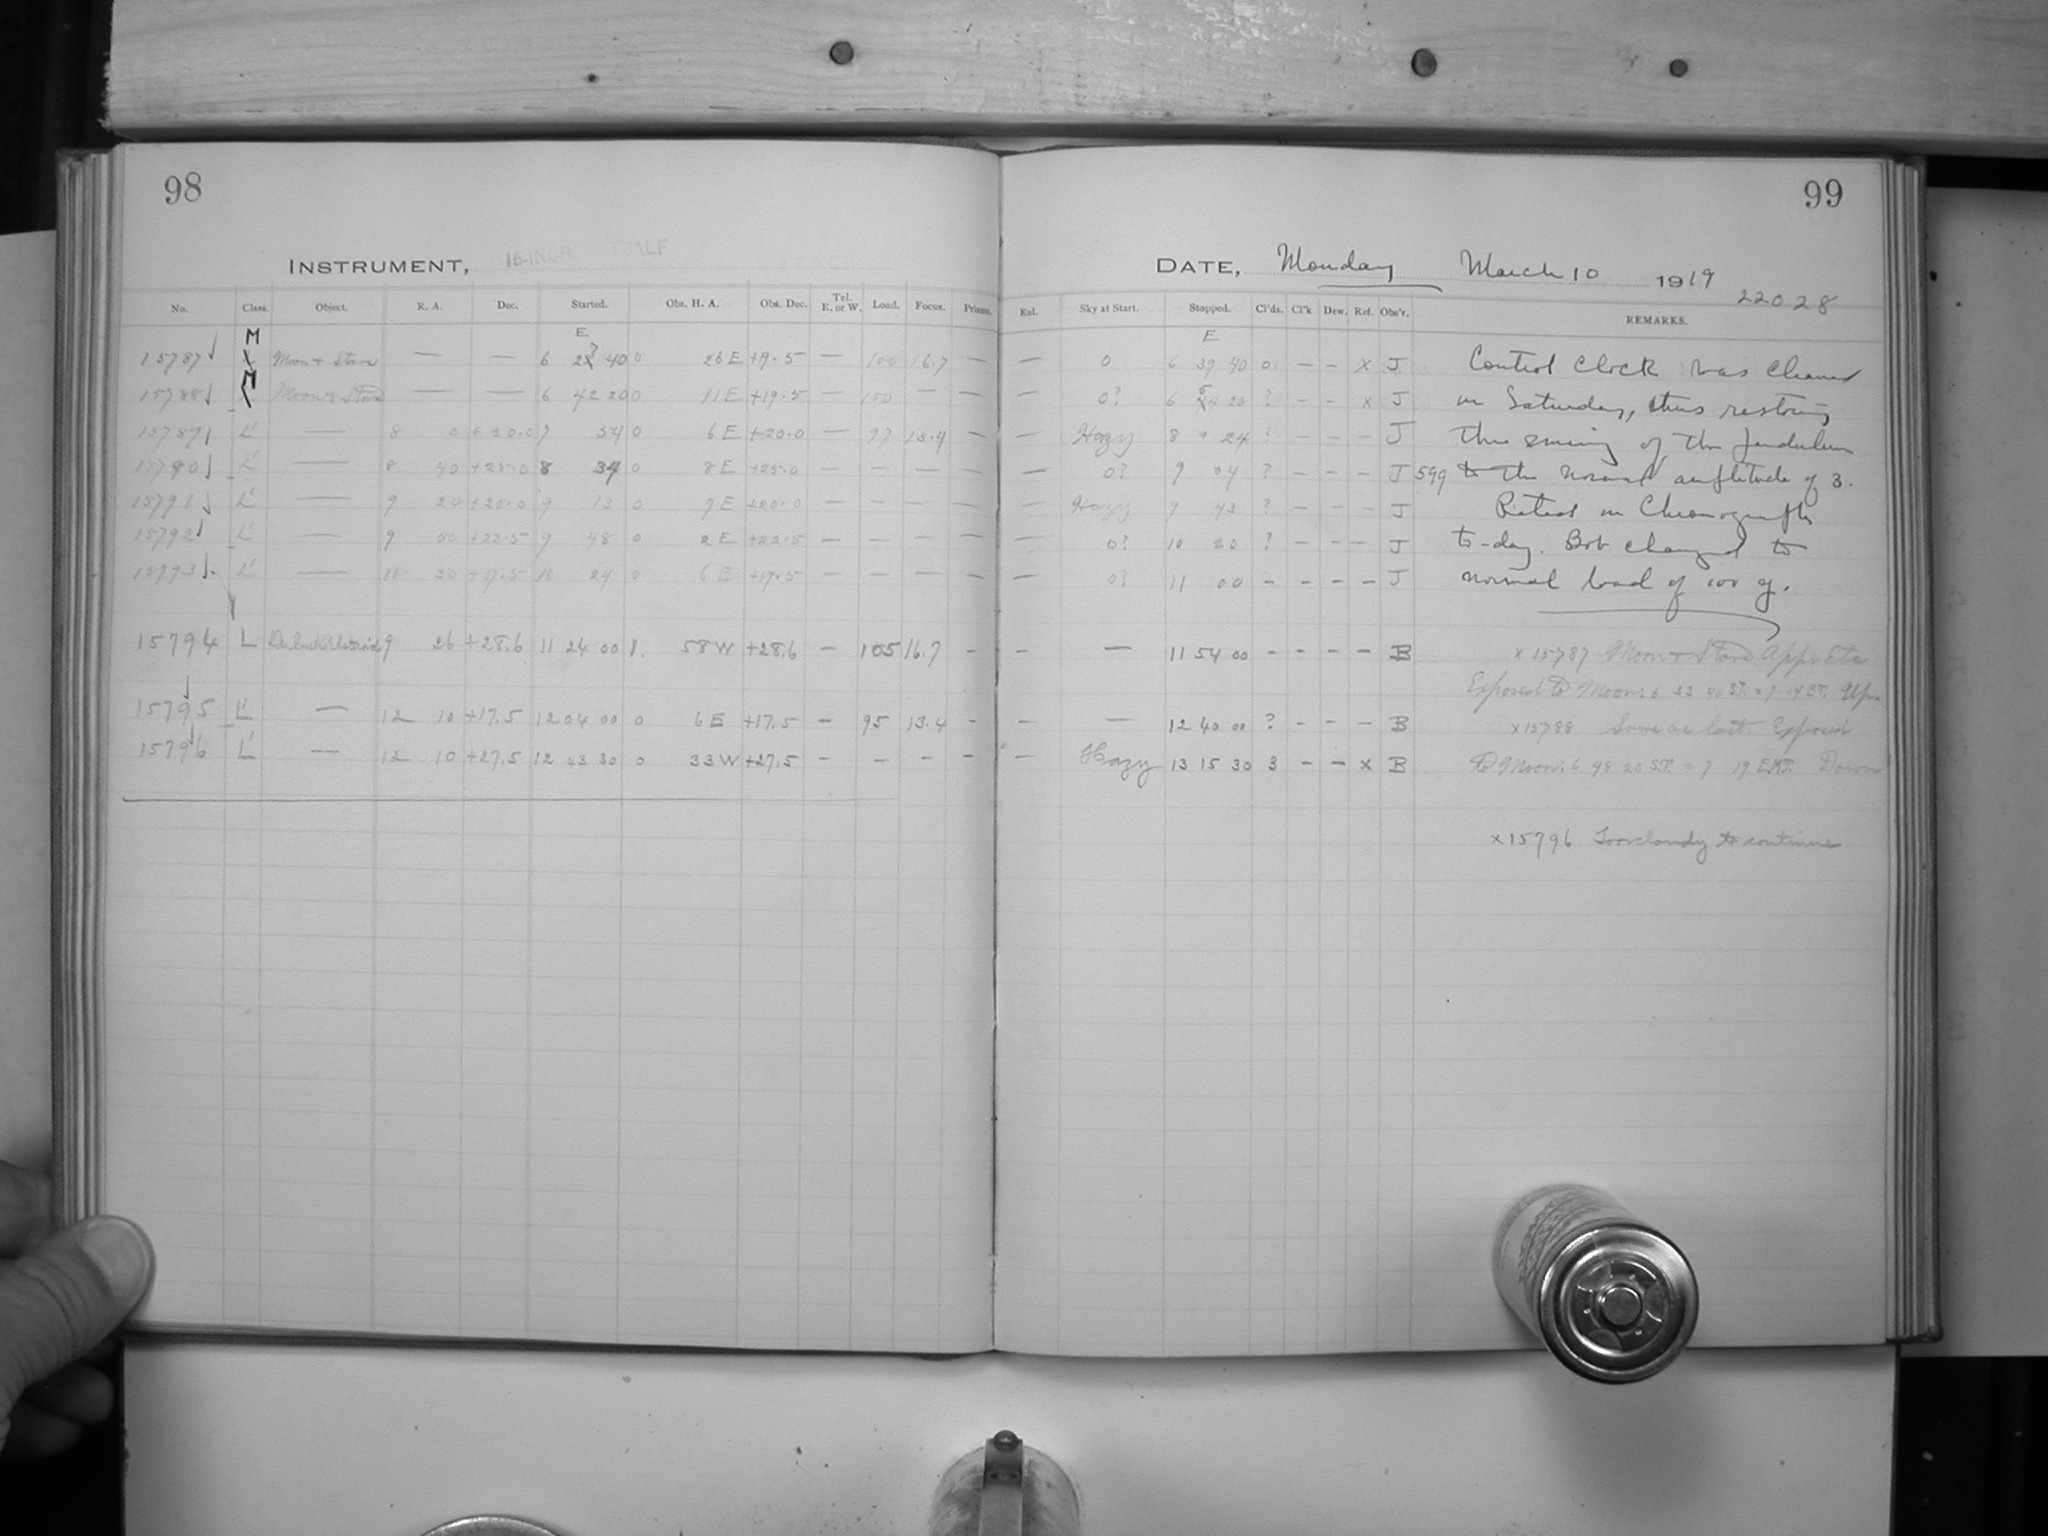 98
INSTRUMENT, 16-INCH METCALF
No. Class. Object. R. A. Dec. Started. Obs. H. A. Obs. Dec. Tel. E. or W. Load. Focus. Prisms.
M E
15787 Moon & Stars — — 6 27 40 0 26 E +19.5 — 100 16.7 —
M
15788 Moon & Stars — — 6 42 20 0 11 E +19.5 — 100 — —
15789 L' — 8 0 +20.0 7 54 0 6 E +20.0 — 97 13.4 —
15790 L' — 8 40 +25.0 8 34 0 8 E +25.0 — — — —
15791 L' — 9 20 +20.0 9 13 0 9 E +20.0 — — — —
15792 L' — 9 50 +22.5 9 48 0 2 E +22.5 — — — —
15793 L' — 10 30 +17.5 10 24 0 6 E +17.5 — — — —
15794 L 9 26 +28.6 11 24 00 1. 58 W +28.6 — 105 16.7 —
15795 L' — 12 10 +17.5 12 04 00 0 6 E +17.5 — 95 13.4 -
15796 L' — 12 10 +27.5 12 43 30 0 33 W +27.5 — — — —
99
DATE, Monday March 10 1919
22028
Enl. Sky at Start. Stopped. Cl'ds. Cl'k Dew. Ref. Obs'r. REMARKS.
E
— 0 6 39 40 0 — — x J Control Clock was cleaned
— 0? 6 54 20 ? — — x J on Saturday, thus restoring
— Hazy 8 24 ? — — — J the swing of the pendulum
— 0? 9 04 ? — — — J 599 to the normal amplitude of 3.
— Hazy 9 43 ? — — — J on Chronograph
— 0? 10 20 ? — — — J to-day. Bob changed to
— 0? 11 00 — — — — J normal load of 100 g.
— — 11 54 00 — — — — B x 15787 Moon & Stars App. Etc
Exposed to Moon: 6 33 40 S.T. = 7 4 E.T. Up.
— — 12 40 00 ? — — — B x 15788 Same as last. Exposed
— Hazy 13 15 30 3 — — x B to Moon: 6 48 20 S.T. = 7 19 E.M.T. Down
x 15796 Too cloudy to continue